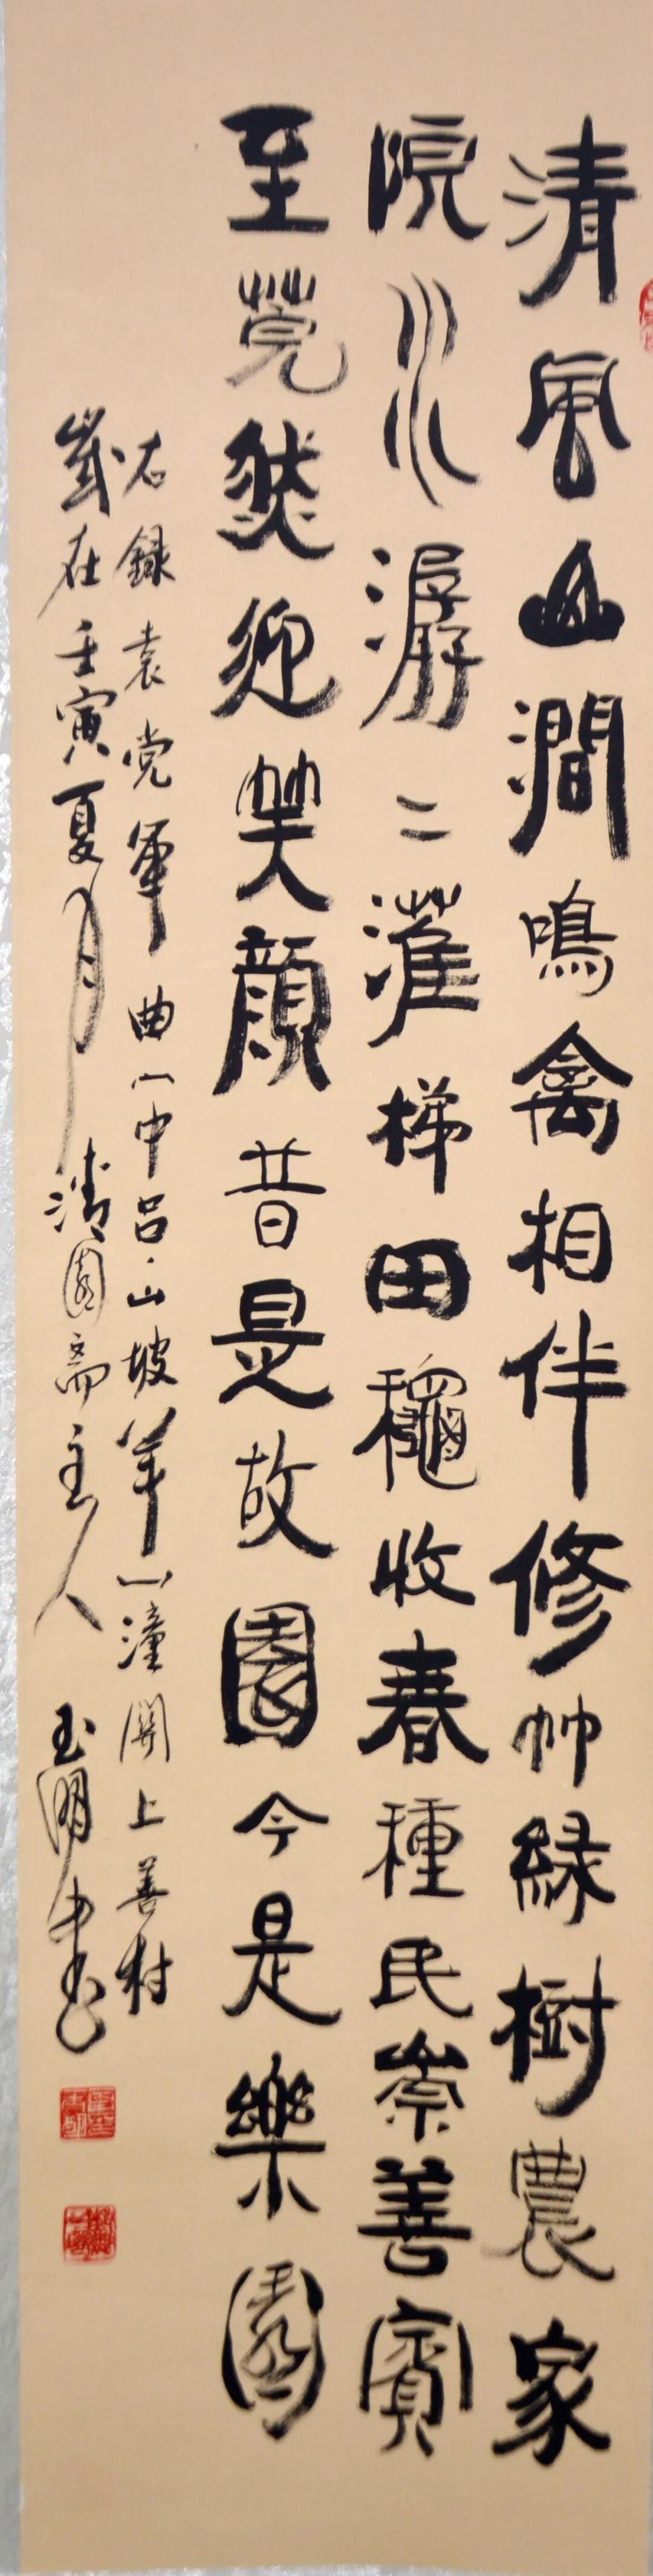 清風山澗鳴禽相伴修竹緑樹農家
院水潺二灌梯田穐收春種民崇善賓
至莞然迎笑顔昔是故園今是樂園
右録袁党軍曲〈中呂·山坡羊〉潼関上善村
歲在壬寅夏月清園斋主人玉